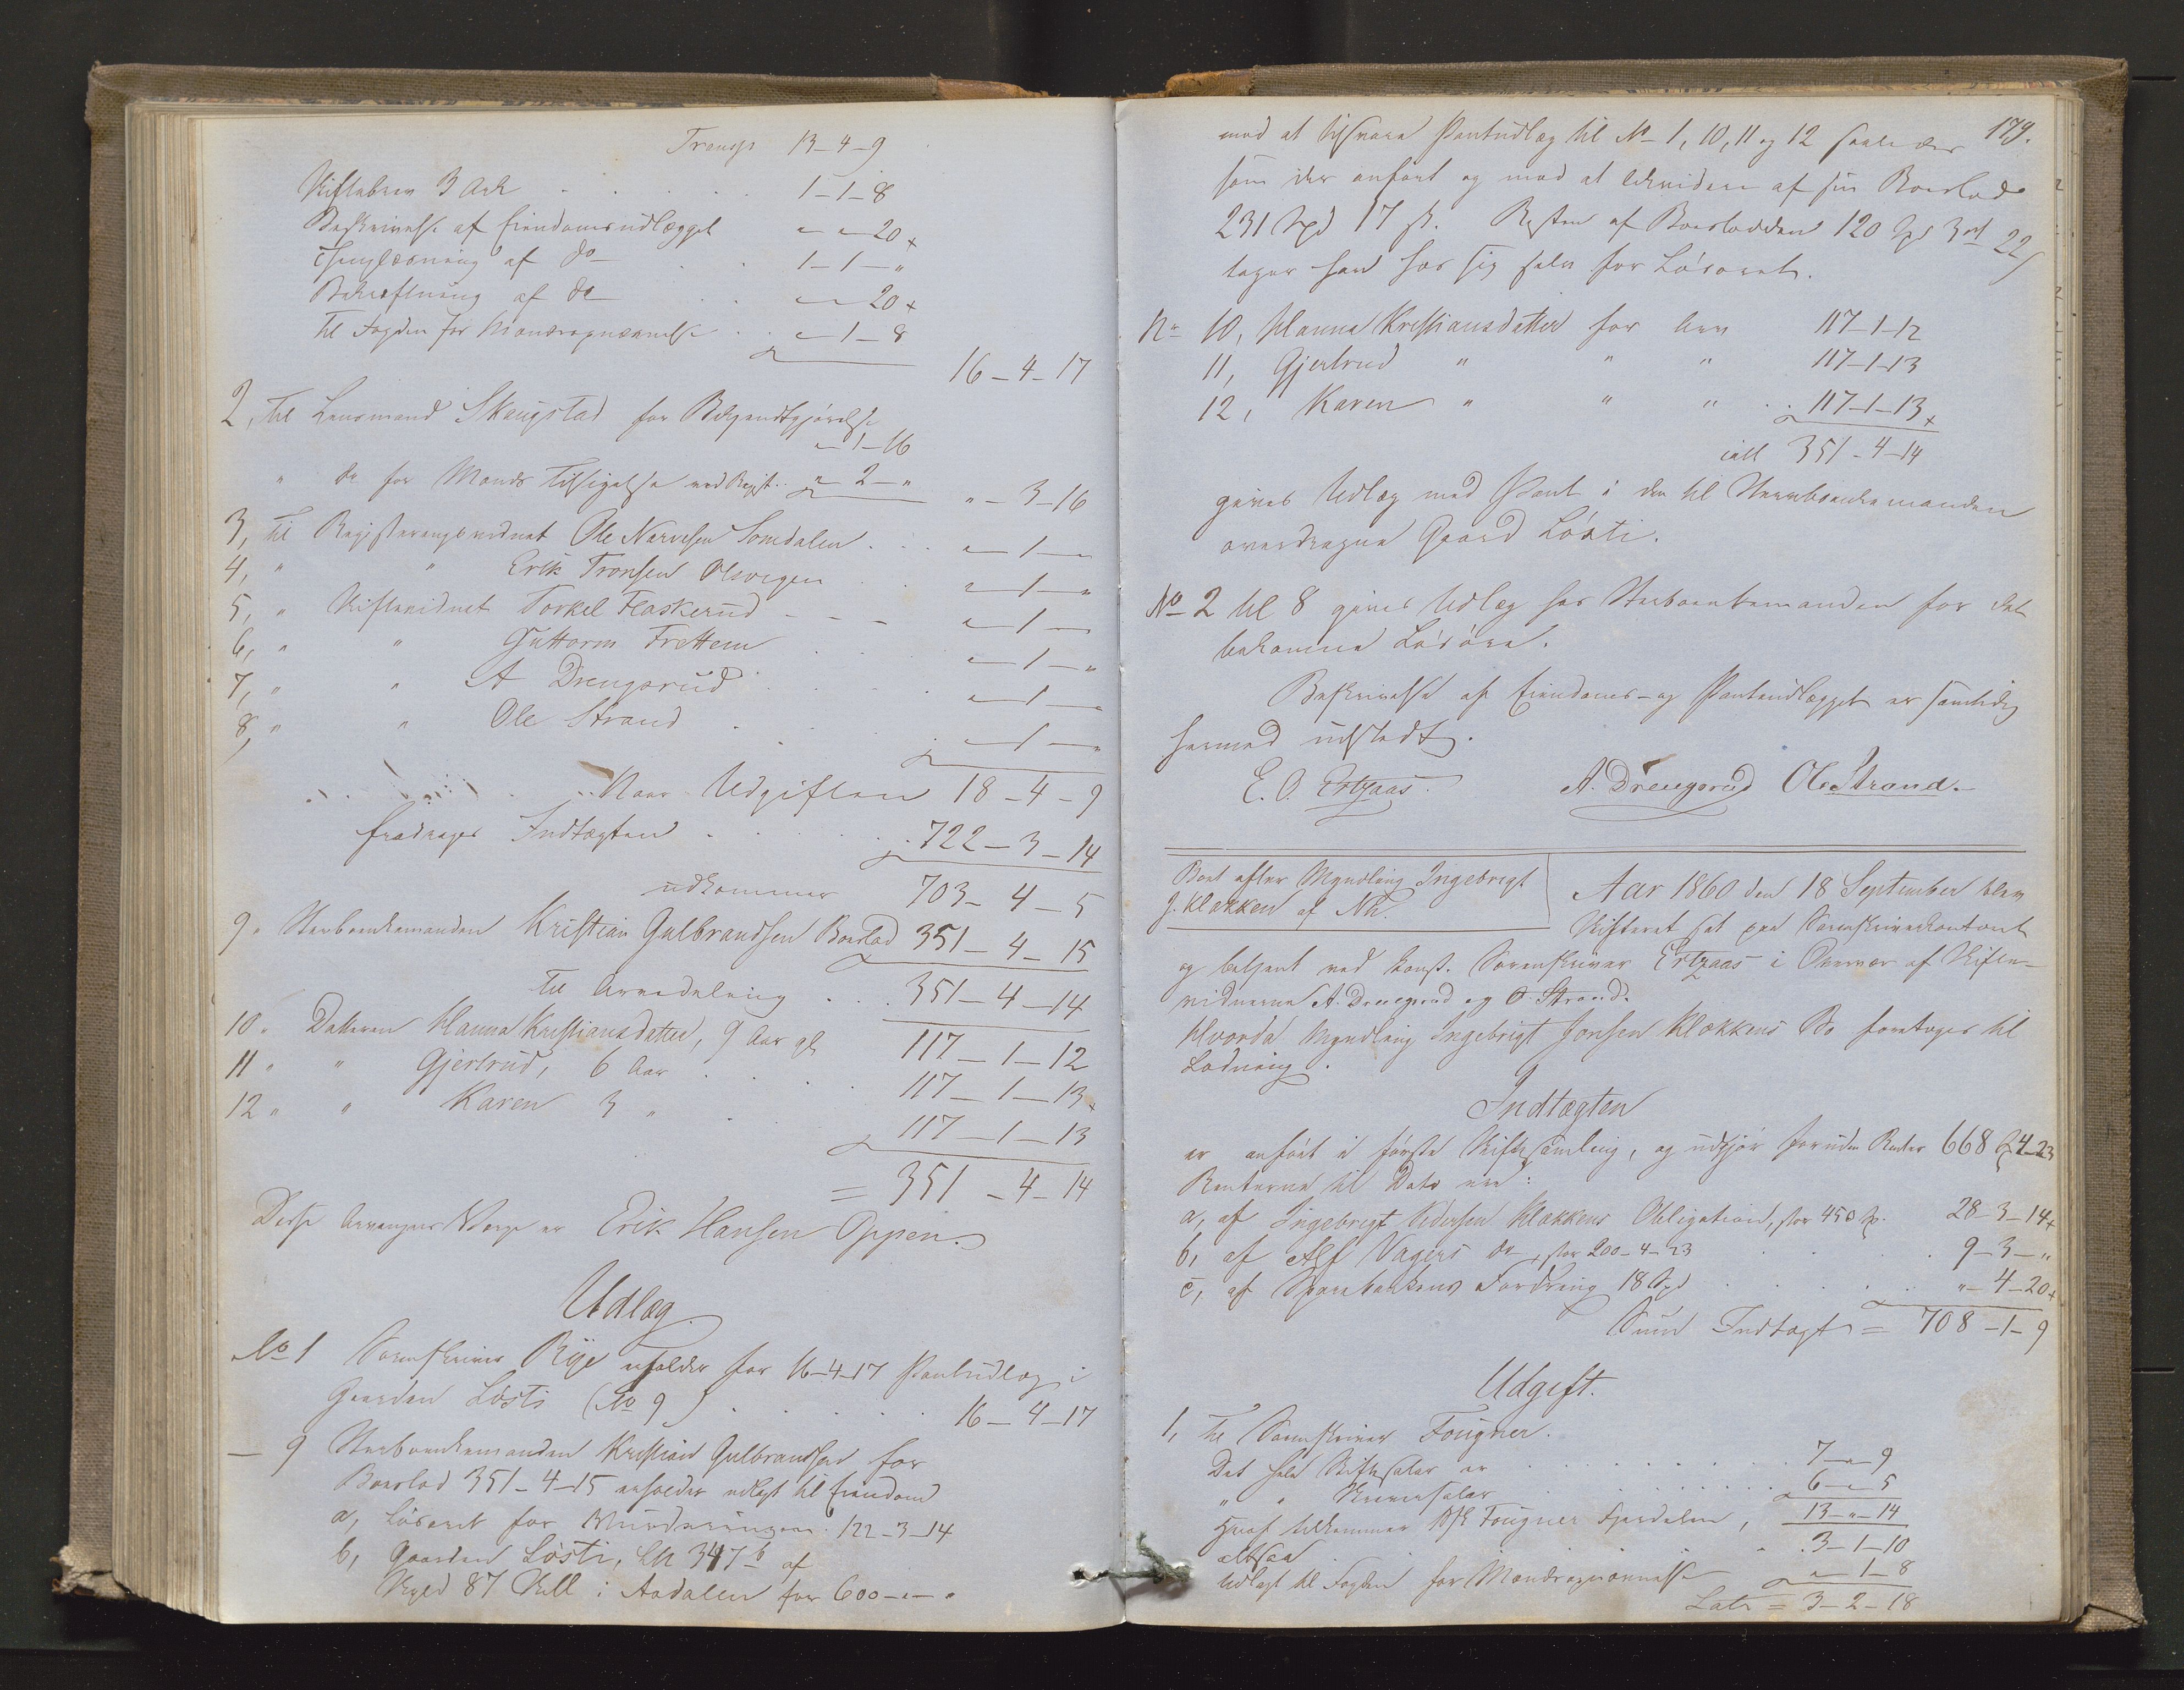 Transp 13-4-9
Skiftebrev 3 Ark . . . . . 1-1-8
Beskrivelse af Eiendomsudlægget "-"-20
Thinglæsning af do . . 1-1-"
Bekræftning af do . . "-"-20
Til Fogden for Mændsopnævnelse . . "-1-8
16-4-17
2, Til Lensmand Skaugstad for Bekjendtgjørelse
"-1-16
" do for Mænds Tilsigelse ved Regist. "-2-" "-3-16
3, til Registreringsvidnet Ole Narvesen Somdalen . . "-1-"
4, " " Erik Tronsen Olsvegen . . "-1-"
5, " Skiftevidnet Torkel Flaskerud - - - "-1-"
6, " " Guttorm Frettem . . "-1-"
7, " " A Drengsrud . . . "-1-"
8, " " Ole Strand . . . "-1-"
Naar Udgiften 18-4-9
fradrages Indtægten . . . . 722-3-14
udkommer 703-4-5
9, Sterboenkemanden Kristian Gulbrandsen Boeslod 351-4-15
Til Arvedeling . . . 351-4-14
10, Datteren Hanna Kristiansdatter, 9 Aar gl. 117-1-12
11, " Gjertrud, 6 Aar . . . 117-1-13
12, " Karen 3 " . 117-1-13
= 351-4-14
Disse Arvingers Værge er Erik Hansen Oppen.
Udlæg.
No 1 Sorenskriver Rye erholder for 16-4-17 Pantudlæg i
Gaarden Løsti (No 9) . . . . . 16-4-17
— 9 Sterboenkemanden Kristian Gulbrandsen for
Boeslod 351-4-15 erholder udlagt til Eiendom
a, Løsøret for Vurderingen 122-3-14
b, Gaarden Løsti, LN 347b af
Skyld 87 Skill i Aadalen for 600-"-"
179.
mod at tilsvare Pantudlæg til No 1, 10, 11 og 12 saaledes
som der anført og mod at likvidere af sin Boeslod
231 Spd 17 s. Resten af Boeslodden 120 Spd 3 ort 22 s
tager han hos sig selv for Løsøret.
No 10, Hanna Kristiansdatter for Arv 117-1-12
11, Gjertrud " " " 117-1-13
12, Karen " " " . . 117-1-13
ialt 351-4-14
gives Udlæg med Pant i den til Sterboenkemanden
overdragne Gaard Løsti.
No 2 til 8 gives Udlæg hos Sterboenkemanden for det
bekomne Løsøre.
Beskrivelse af Eiendoms- og Pantudlægget er samtidig
hermed udstedt.
E. O. Ertzaas. A. Drengsrud Ole Strand.
Boet efter Myndling Ingebrigt
J. Klækken af Nh.
Aar 1860 den 18 September blev
Skifteret sat paa Sorenskriverkontoret
og betjent ved konst. Sorenskriver Ertzaas i Overvær af Skifte-
vidnerne A. Drengsrud og O. Strand.
Hvorda Myndling Ingebrigt Jonsen Klækkens Bo foretoges til
Lodning.
Indtægten
er anført i første Skiftesamling, og udgjør foruden Renter 668 Sp 4-23
Renterne til Dato ere:
a, af Ingebrigt Pedersen Klækkens Obligation, stor 450 Sp. 28-3-14
b, af Alf Vagers do, stor 200-4-23 . . . 9-3-"
c, af Sparebankens Fordring 18 Spd . . . "-4-20
Sum Indtægt = 708-1-9
Udgift.
1, Til Sorenskriver Fougner.
Det hele Skiftesalær er . . . . . . . 7-"-9
" " Skriversalær . . . . . . . 6-"-5
13-"-14
Heraf tilkommer Fougner Fjerdedelen,
altsaa . . . . . . 3-1-10
Udlagt til Fogden for Mændsopnævnelse "-1-8
Lats = 3-2-18